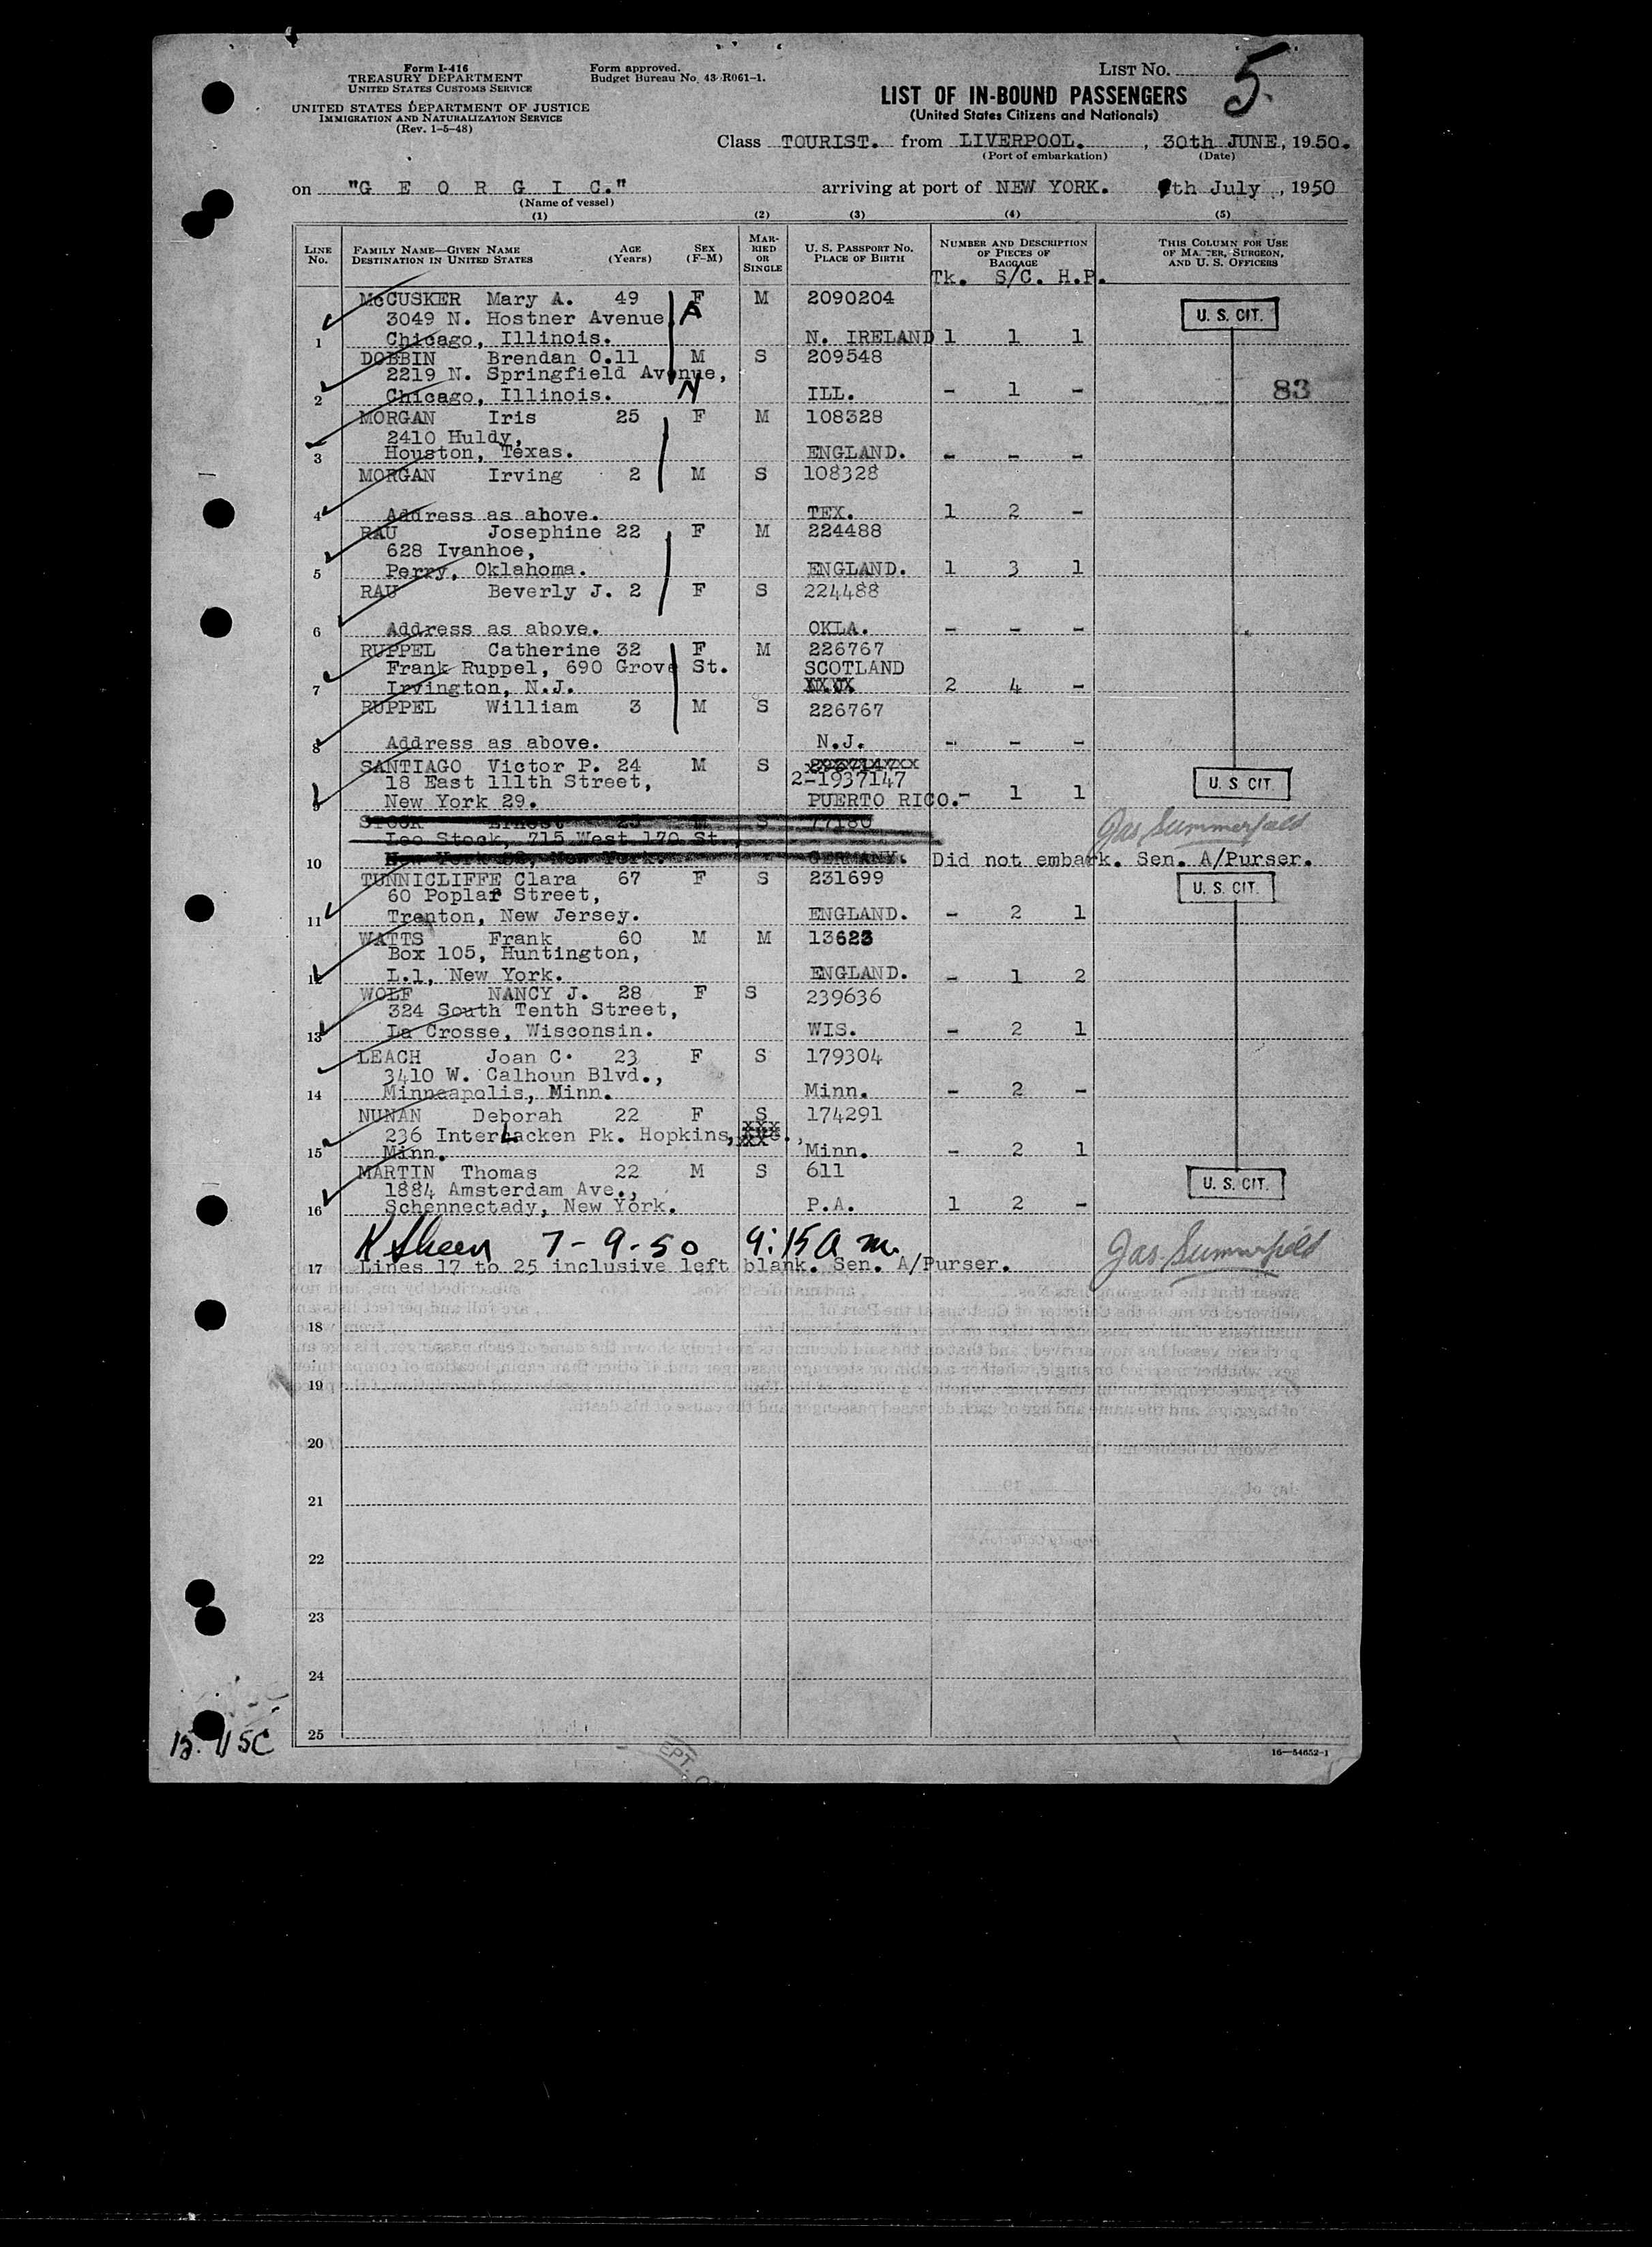 Form I-416
TREASURY DEPARTMENT
UNITED STATES CUSTOMS SERVICE
UNITED STATES DEPARTMENT OF JUSTICE
IMMIGRATION AND NATURALIZATION SERVICE
(Rev. 1-5-48)
Form approved.
Budget Bureau No. 43-R061-1.
LIST No. 5
LIST OF IN-BOUND PASSENGERS
(United States Citizens and Nationals)
Class TOURIST. from LIVERPOOL. , 30th JUNE, 1950.
(Port of embarkation) (Date)
on "G E O R G I C." arriving at port of NEW YORK. th July , 1950
(Name of vessel)
(1) (2) (3) (4) (5)
LINE No. FAMILY NAME—GIVEN NAME DESTINATION IN UNITED STATES AGE (Years) SEX (F-M) MARRIED OR SINGLE U. S. PASSPORT No. PLACE OF BIRTH NUMBER AND DESCRIPTION OF PIECES OF BAGGAGE THIS COLUMN FOR USE OF MASTER, SURGEON, AND U. S. OFFICERS
Tk. S/C. H.P.
McCUSKER Mary A. 49 F M 2090204
3049 N. Hostner Avenue A U. S. CIT.
1 Chicago, Illinois. N. IRELAND 1 1 1
DOBBIN Brendan O.11 M S 209548
2219 N. Springfield Avenue,
2 Chicago, Illinois. N ILL. - 1 - 83
MORGAN Iris 25 F M 108328
2410 Huldy,
3 Houston, Texas. ENGLAND. - - -
MORGAN Irving 2 M S 108328
4 Address as above. TEX. 1 2 -
RAU Josephine 22 F M 224488
628 Ivanhoe,
5 Perry, Oklahoma. ENGLAND. 1 3 1
RAU Beverly J. 2 F S 224488
6 Address as above. OKLA. - - -
RUPPEL Catherine 32 F M 226767
Frank Ruppel, 690 Grove St. SCOTLAND
7 Irvington, N.J. 2 4 -
RUPPEL William 3 M S 226767
8 Address as above. N.J. - - -
SANTIAGO Victor P. 24 M S
18 East 111th Street, 2-1937147 U. S. CIT.
9 New York 29. PUERTO RICO. - 1 1
STOCK Ernest 25 M S 77180
Leo Stock, 715 West 170 St. Jas Summerfield
10 New York 32, New York. GERMANY. Did not embark. Sen. A/Purser.
TUNNICLIFFE Clara 67 F S 231699
60 Poplar Street, U. S. CIT.
11 Trenton, New Jersey. ENGLAND. - 2 1
WATTS Frank 60 M M 13623
Box 105, Huntington,
12 L.1, New York. ENGLAND. - 1 2
WOLF NANCY J. 28 F S 239636
324 South Tenth Street,
13 La Crosse, Wisconsin. WIS. - 2 1
LEACH Joan C. 23 F S 179304
3410 W. Calhoun Blvd.,
14 Minneapolis, Minn. Minn. - 2 -
NUNAN Deborah 22 F S 174291
236 Interlacken Pk. Hopkins,
15 Minn. Minn. - 2 1
MARTIN Thomas 22 M S 611
1884 Amsterdam Ave., U. S. CIT.
16 Schennectady, New York. P.A. 1 2 -
K Sheen 7-9-50 9:15 a m. Jas Summerfield
17 Lines 17 to 25 inclusive left blank. Sen. A/Purser.
18
19
20
21
22
23
24
25
16—54652-1